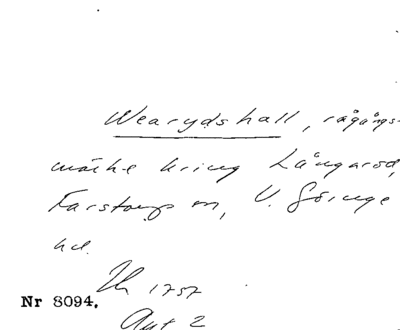 Wearydshall, rågångs-
märke kring Långaröd,
Farstorp sn, V. Göinge
hd.
1757
Nr 8094.
Akt 2